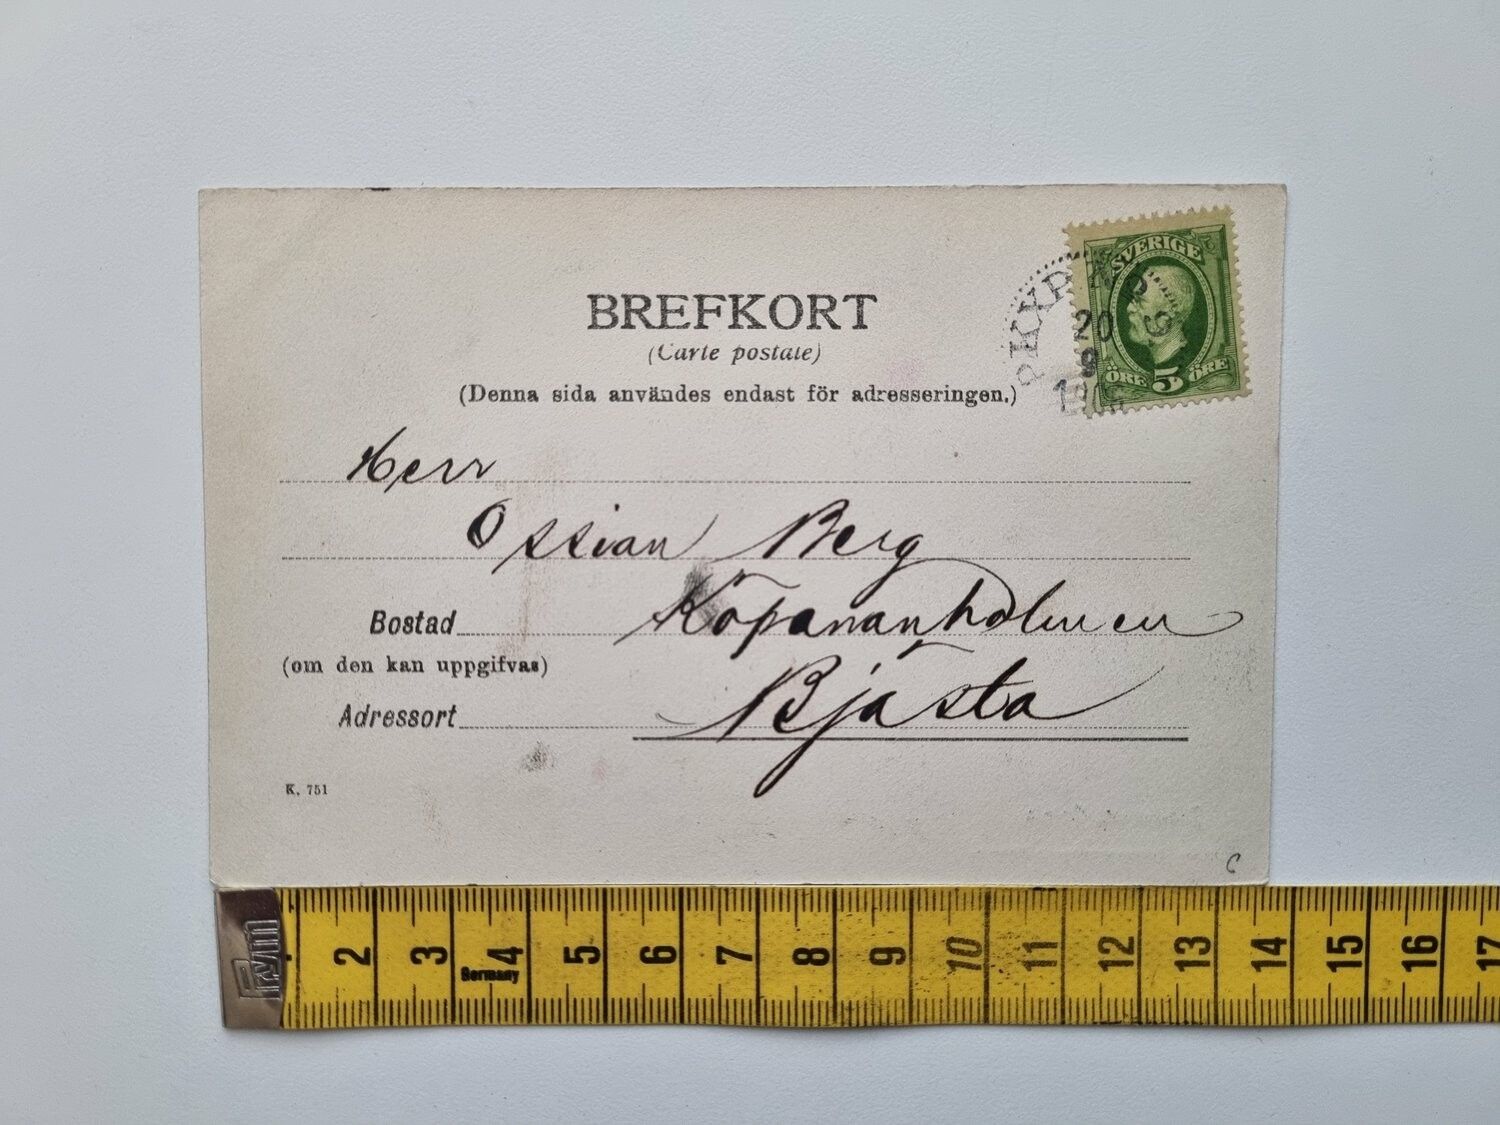 BREFKORT
(Carte postale)
(Denna sida användes endast för adresseringen.)
SVERIGE
PKXP
20
9
ÖRE 5 ÖRE
Herr
Ossian Berg
Bostad Köpmanholmen
(om den kan uppgifvas)
Adressort Bjästa
K. 751
C
Prym
2 3 4 5 6 7 8 9 10 11 12 13 14 15 16 17
Germany